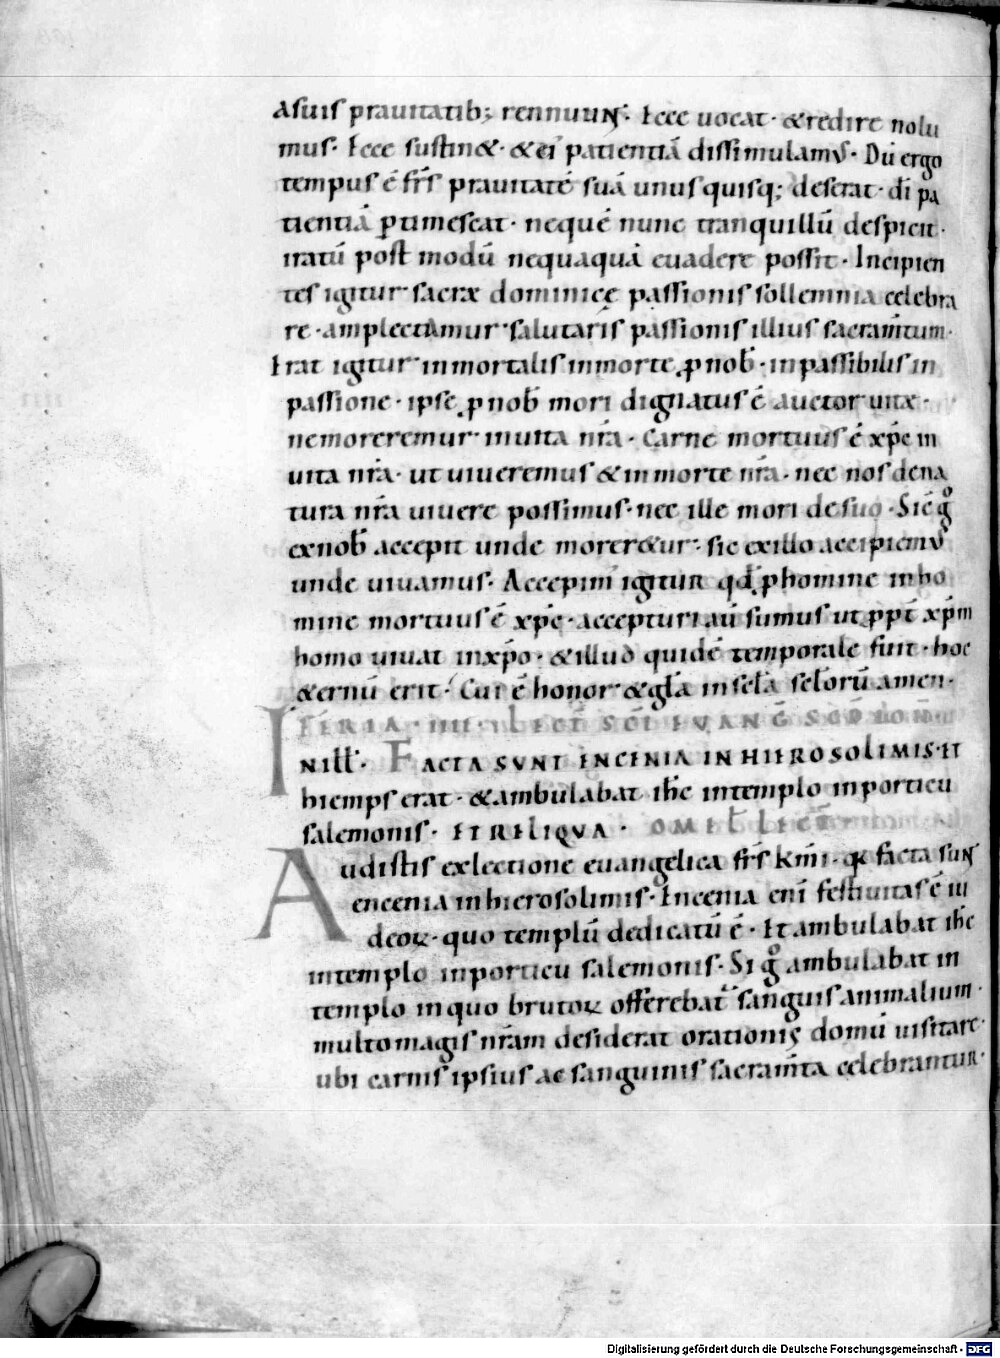 asuis prauitatib; rennuunt. Ecce uocat· &redire nolu
mus· Ecce sustin&· &ei' patientiā dissimulamus· Dū ergo
tempus ē frs̄ prauitatē suā unus quisq; deserat· di ̄pa
tientiā ꝑtimescat· neque nunc tranquillū despicit·
iratū post modū nequaquā euadere possit· Incipien
tes igitur sacrę dominicę passionis sollemnia celebra
re· amplectamur salutaris passionis illius sacram̄tum·
Erat igitur inmortalis inmorte ꝓ nob̄· inpassibilis in
passione· ipse ꝓ nob̄ mori dignatus ē auctor uitę·
ne moreremur in uita nr̄a· Carne mortuus ē xp̄c in
uita nr̄a· ut uiueremus & in morte nr̄a· nec nos dena
tura nr̄a uiuere possimus· nec ille mori de suo· Sic gͦ
ex nob̄ accepit unde morer&ur· sic ex illo accipiemus
unde uiuamus· Accepim' igitur qd̄ ꝑ homine in ho
mine mortuus ē xp̄c· accepturi aū sumus ut ꝓpt̄ xp̄m
homo uiuat in xp̄o· &illud quidē temporale fuit· hoc
&ernū erit· Cui ē honor &gl̄a in scl̄a scl̄orū amen·
FERIA· IIII· LECT̄ SC̄I EVANḠ SCD̄ IOH̄·
IN ill̄· FACTA SVNT ENCENIA IN HIEROSOLIMIS· ET
hiemps erat· &ambulabat ihc̄ in templo in porticu
salemonis· ET RELIQVA· OMEL̄ LECT̄
Audistis ex lectione euangelica frs̄ km̄i· qꝛ facta sunt
encenia in hierosolimis· Encenia eni ̄festiuitas ē iu
deoꝝ· quo templū dedicatū ē· Et ambulabat ihc̄
in templo in porticu salemonis· Si gͦ ambulabat in
templo in quo brutoꝝ offerebat' sanguis animalium·
multo magis nr̄am desiderat orationis domū uisitare·
ubi carnis ipsius ac sanguinis sacram̄ta celebrantur·
Digitalisierung gefördert durch die Deutsche Forschungsgemeinschaft - DFG